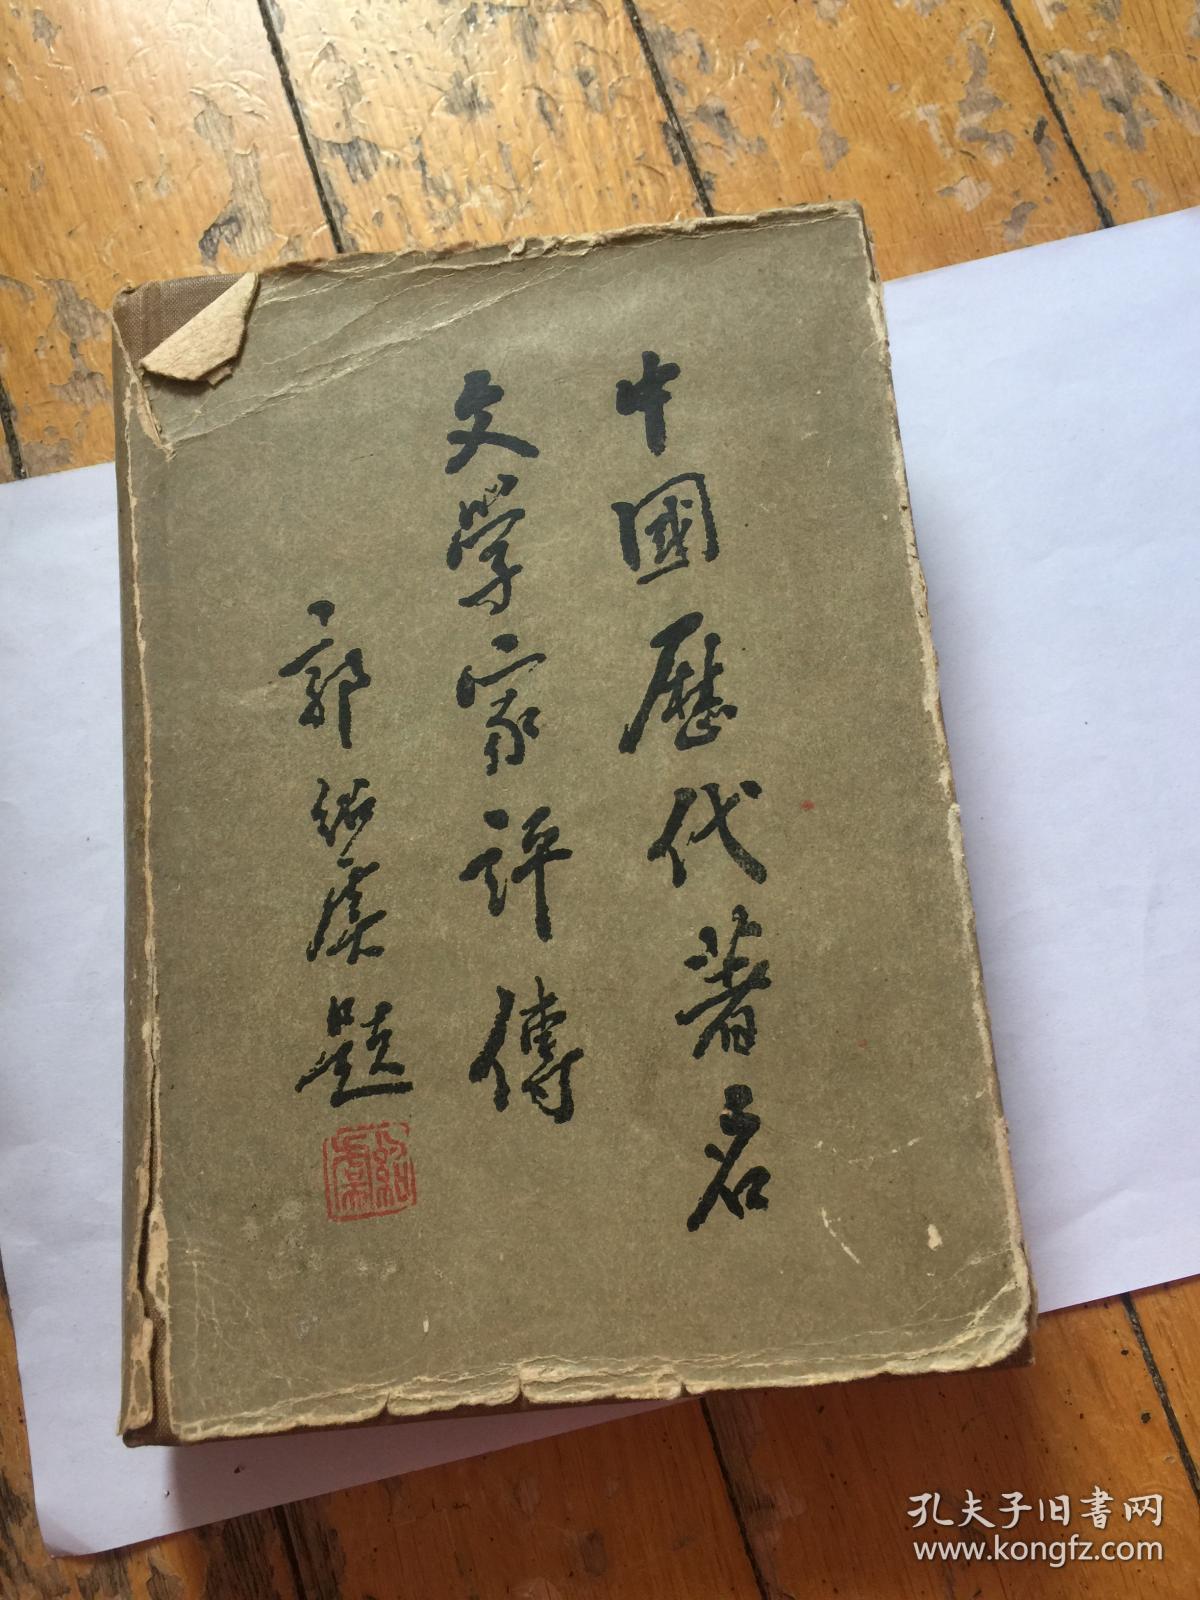 中國歷代著名
文學家評傳
郭紹虞題
紹虞
孔夫子旧書网
www.kongfz.com